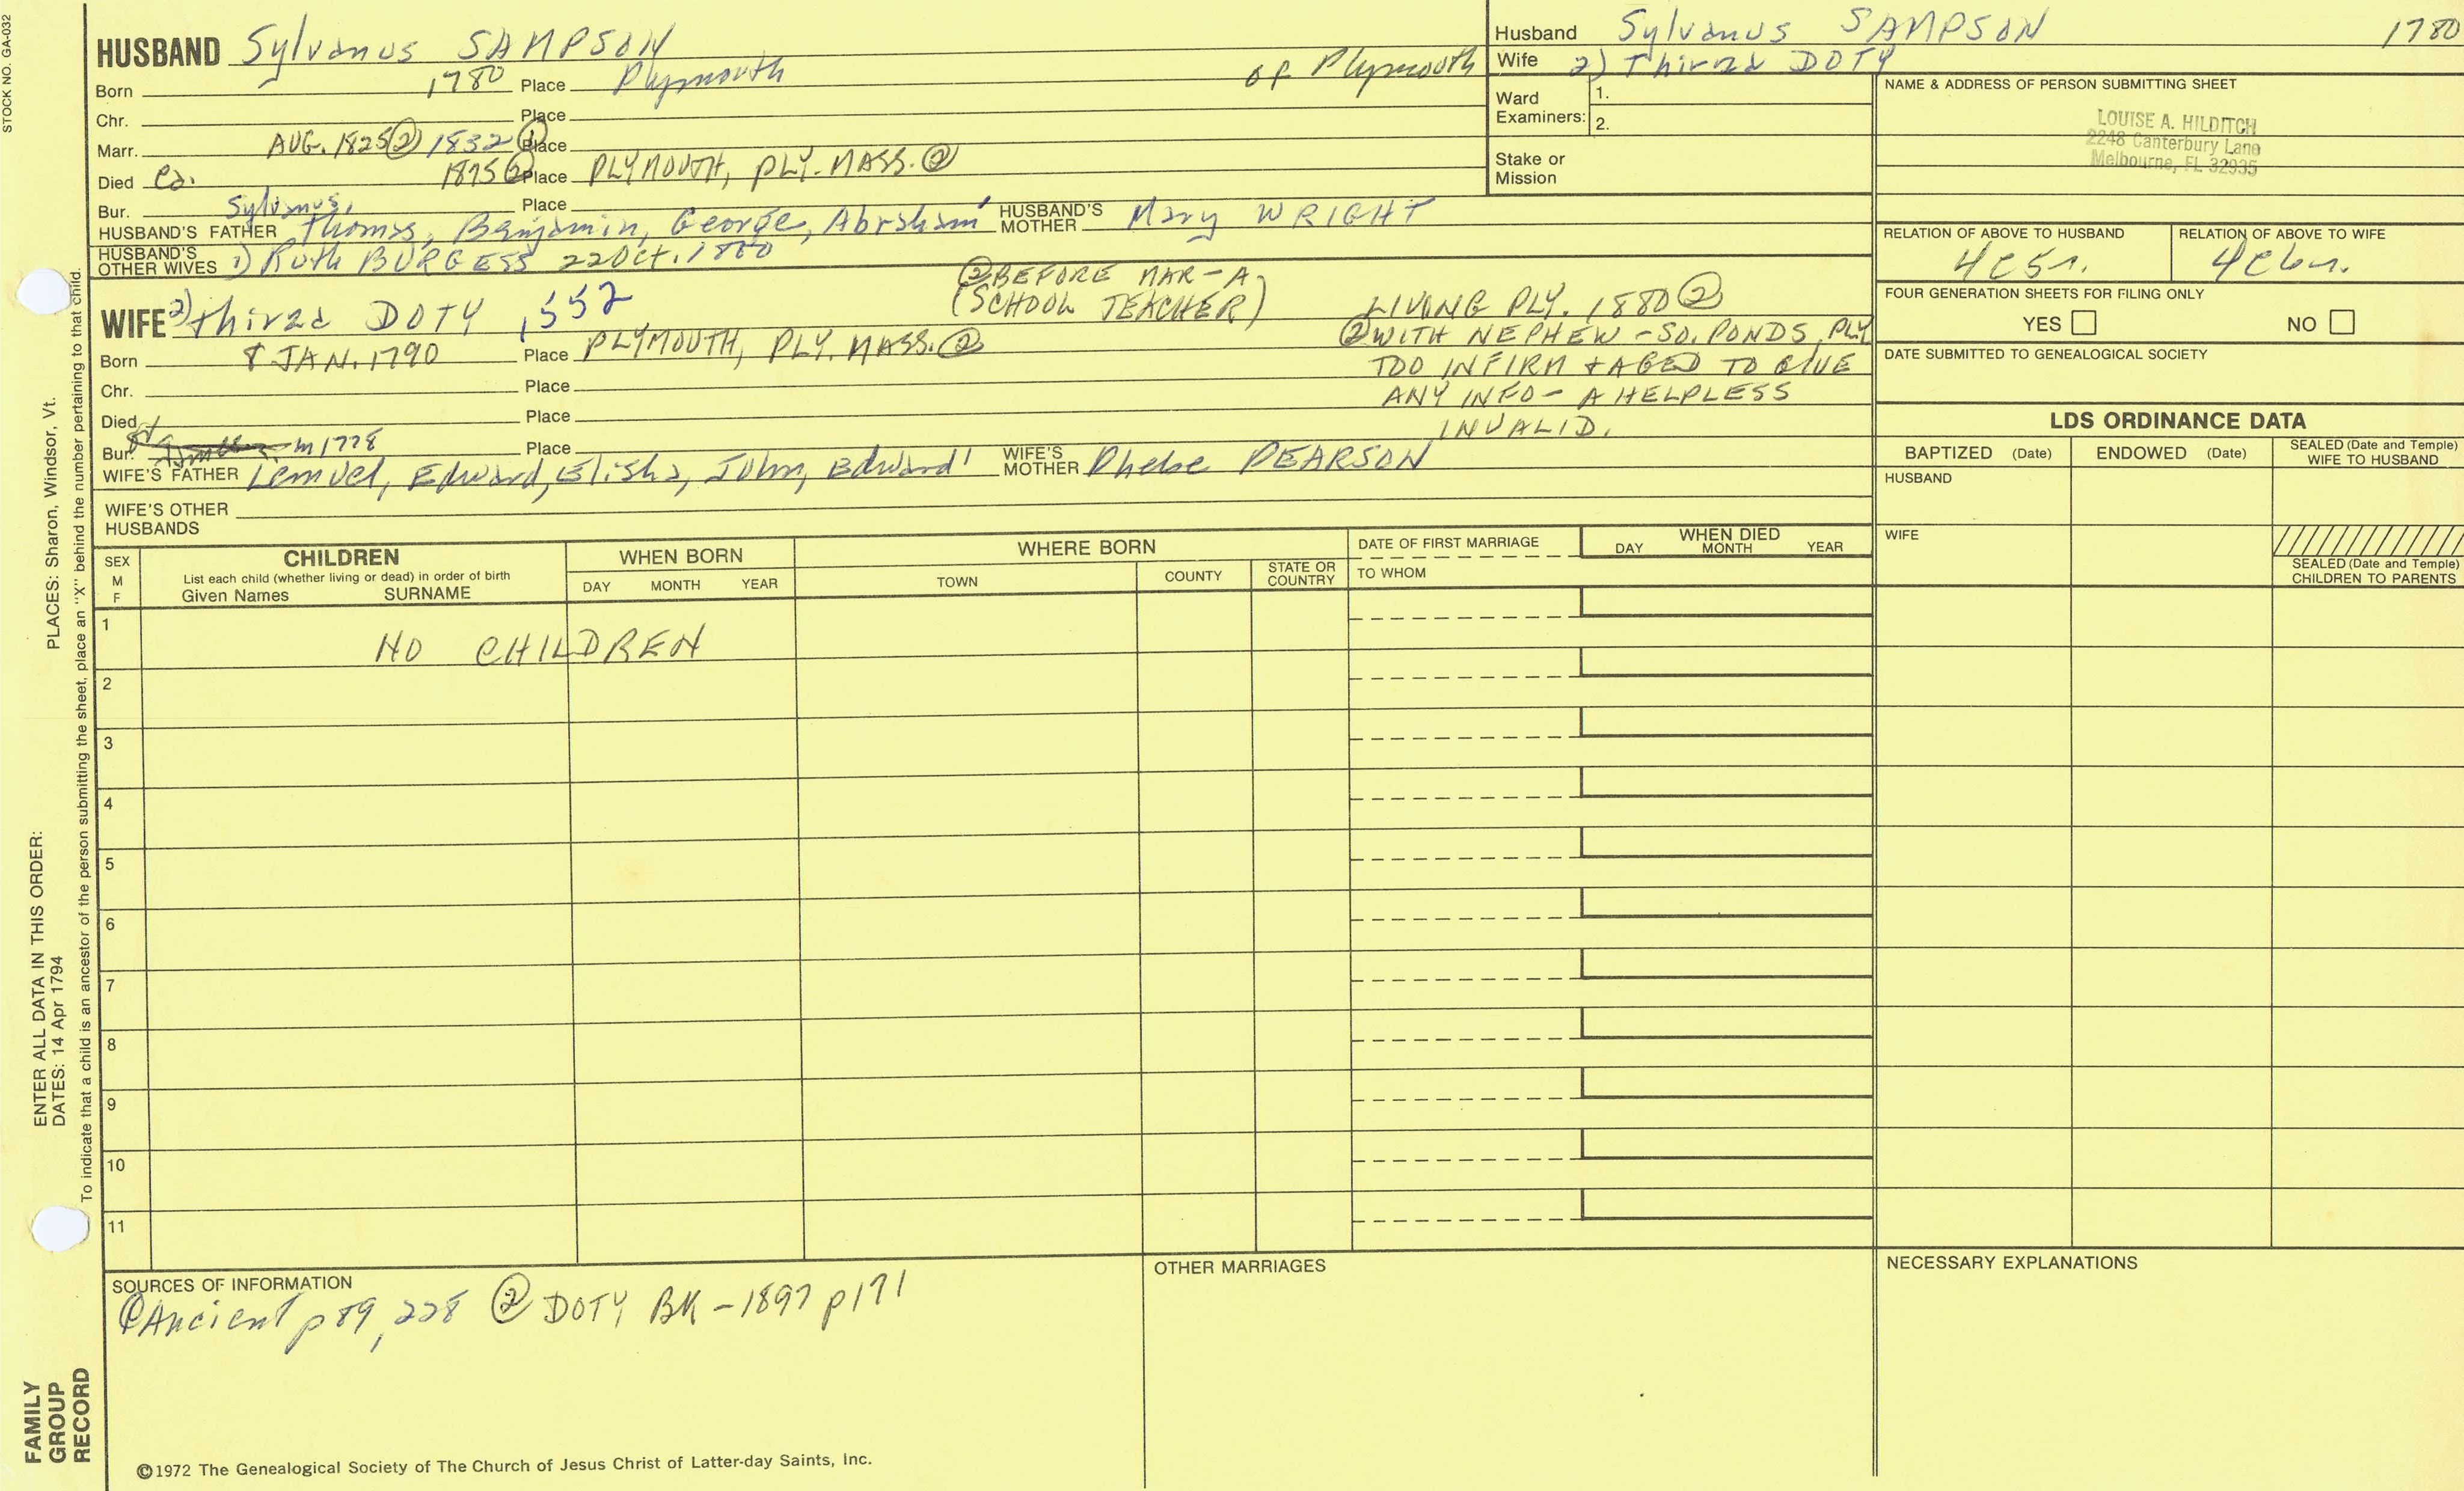 STOCK NO. GA-032
HUSBAND Sylvanus SAMPSON
Born 1780 Place Plymouth of Plymouth
Chr. Place
Marr. AUG. 1825 ② 1832 ① Place
Died Ca. 1875 ② Place PLYMOUTH, PLY. MASS. ②
Bur. Place
HUSBAND'S FATHER Sylvanus, Thomas, Benjamin, George, Abraham' HUSBAND'S MOTHER Mary WRIGHT
HUSBAND'S OTHER WIVES 1) Ruth BURGESS 22 Oct. 1800
②BEFORE MAR - A
(SCHOOL TEACHER)
WIFE 2) Thirza DOTY , 552
Born 8 JAN. 1790 Place PLYMOUTH, PLY. MASS. ②
Chr. Place
Died Place
Bur. m 1778 Place
LIVING PLY. 1880 ②
② WITH NEPHEW - SO. PONDS, PLY
TOO INFIRM + AGED TO GIVE
ANY INFO - A HELPLESS
INVALID.
WIFE'S FATHER Lemuel, Edward, Elisha, John, Edward' WIFE'S MOTHER Phebe PEARSON
WIFE'S OTHER
HUSBANDS
Husband Sylvanus SAMPSON 1780
Wife 2) Thirza DOTY
Ward
Examiners:
1.
2.
Stake or
Mission
NAME & ADDRESS OF PERSON SUBMITTING SHEET
LOUISE A. HILDITCH
2248 Canterbury Lane
Melbourne, FL 32935
RELATION OF ABOVE TO HUSBAND RELATION OF ABOVE TO WIFE
4c5r. 4c6r.
FOUR GENERATION SHEETS FOR FILING ONLY
YES NO
DATE SUBMITTED TO GENEALOGICAL SOCIETY
LDS ORDINANCE DATA
BAPTIZED (Date) ENDOWED (Date) SEALED (Date and Temple) WIFE TO HUSBAND
HUSBAND
WIFE
SEALED (Date and Temple)
CHILDREN TO PARENTS
SEX
M
F
CHILDREN
List each child (whether living or dead) in order of birth
Given Names SURNAME
WHEN BORN
DAY MONTH YEAR
WHERE BORN
TOWN COUNTY STATE OR COUNTRY
DATE OF FIRST MARRIAGE
TO WHOM
WHEN DIED
DAY MONTH YEAR
1
NO CHILDREN
2
3
4
5
6
7
8
9
10
11
SOURCES OF INFORMATION
① Ancient p 89, 228 ② DOTY BK - 1897 p 171
OTHER MARRIAGES
NECESSARY EXPLANATIONS
©1972 The Genealogical Society of The Church of Jesus Christ of Latter-day Saints, Inc.
PLACES: Sharon, Windsor, Vt.
ENTER ALL DATA IN THIS ORDER:
DATES: 14 Apr 1794
To indicate that a child is an ancestor of the person submitting the sheet, place an "X" behind the number pertaining to that child.
FAMILY
GROUP
RECORD